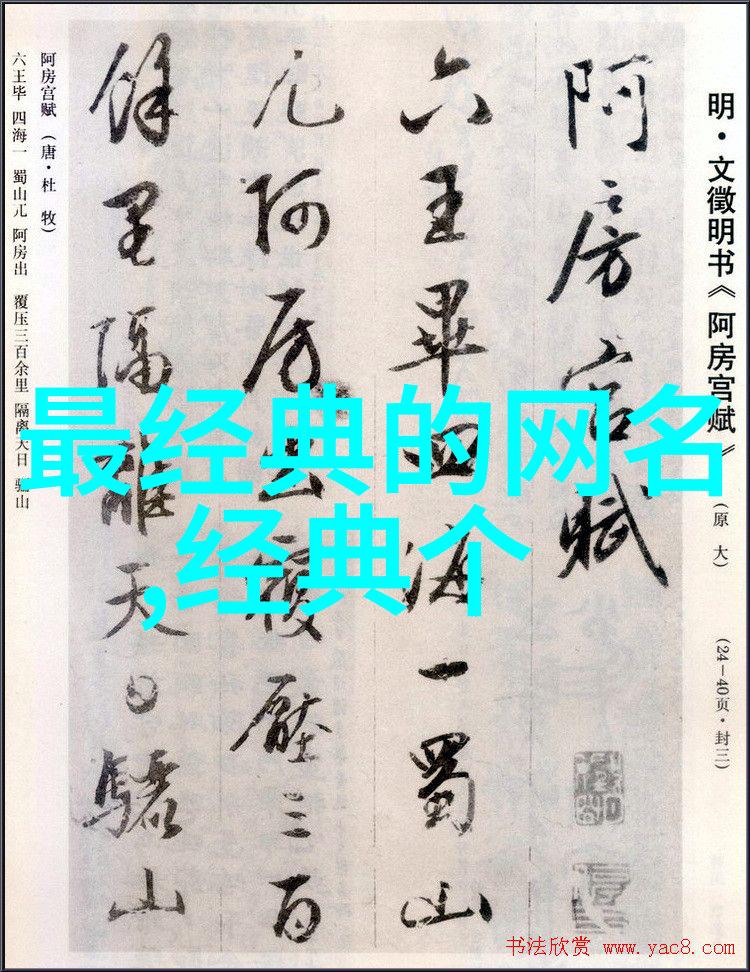 明·文徵明书《阿房宫赋》(原大) (24—40页·封三)
阿房宫賦
六王畢四海一蜀山
兀阿房出覆壓三百
餘里隔離天日驪山
阿房宫赋(唐·杜 牧)
六王毕 四海一 蜀山兀 阿房出 覆压三百余里 隔离天日 骊山
最经典的网名
,经典个
书法欣赏 www.yac8.com